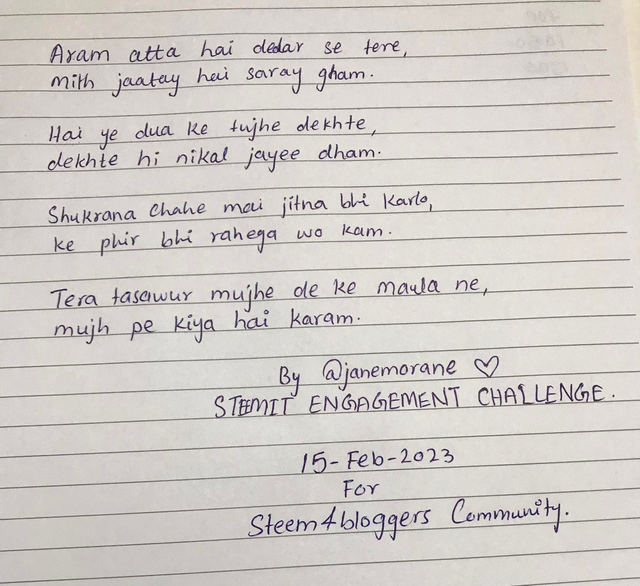 Aram atta hai dedar se tere,
mith jaatay hai saray gham.
Hai ye dua ke tujhe dekhte,
dekhte hi nikal jayee dham.
Shukrana chahe mai jitna bhi karlo,
ke phir bhi rahega wo kam.
Tera tasawur mujhe de ke maula ne,
mujh pe kiya hai karam.
By @janemorane ♡
STEEMIT ENGAGEMENT CHALLENGE.
15-Feb-2023
For
Steem4bloggers Community.